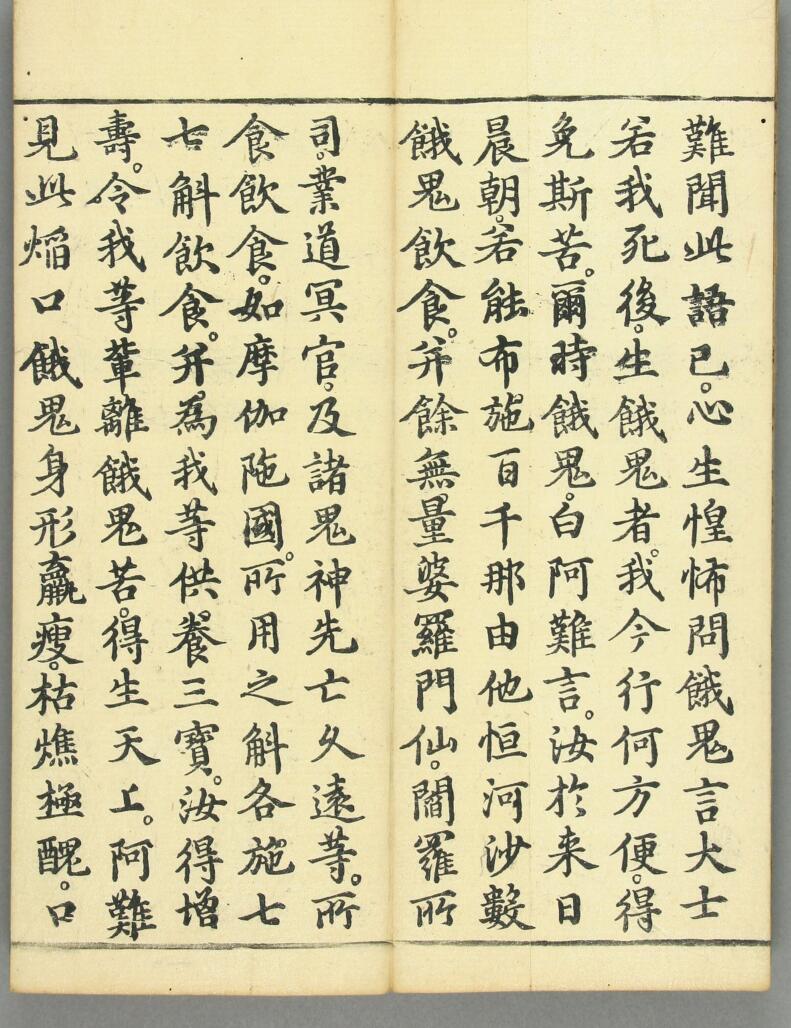 難聞此語已。心生惶怖問餓鬼言大士
若我死後。生餓鬼者。我今行何方便。得
免斯苦。爾時餓鬼。白阿難言。汝於来日
晨朝。若能布施百千那由他恒河沙數
餓鬼飲食。并餘無量婆羅門仙。閻羅所
司。業道冥官。及諸鬼神先亡久遠等。所
食飲食。如摩伽陁國。所用之斛各施七
七斛飲食。并為我等供養三寶。汝得增
壽。令我等輩離餓鬼苦。得生天上。阿難
見此焔口餓鬼身形羸瘦。枯燋極醜。口